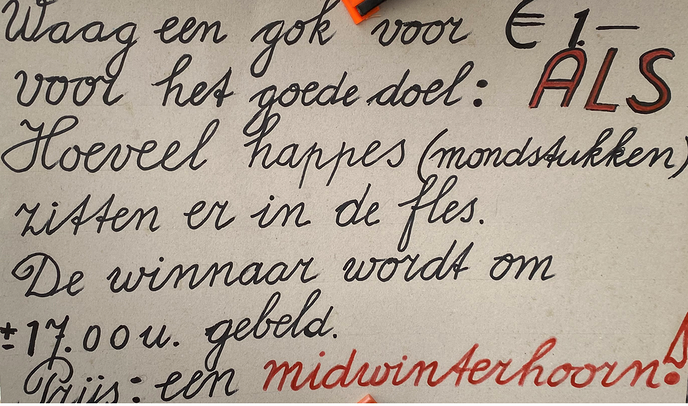 Waag een gok voor € 1.—
voor het goede doel: ALS
Hoeveel happes (mondstukken)
zitten er in de fles.
De winnaar wordt om
± 17.00 u. gebeld.
Prijs: een midwinterhoorn!